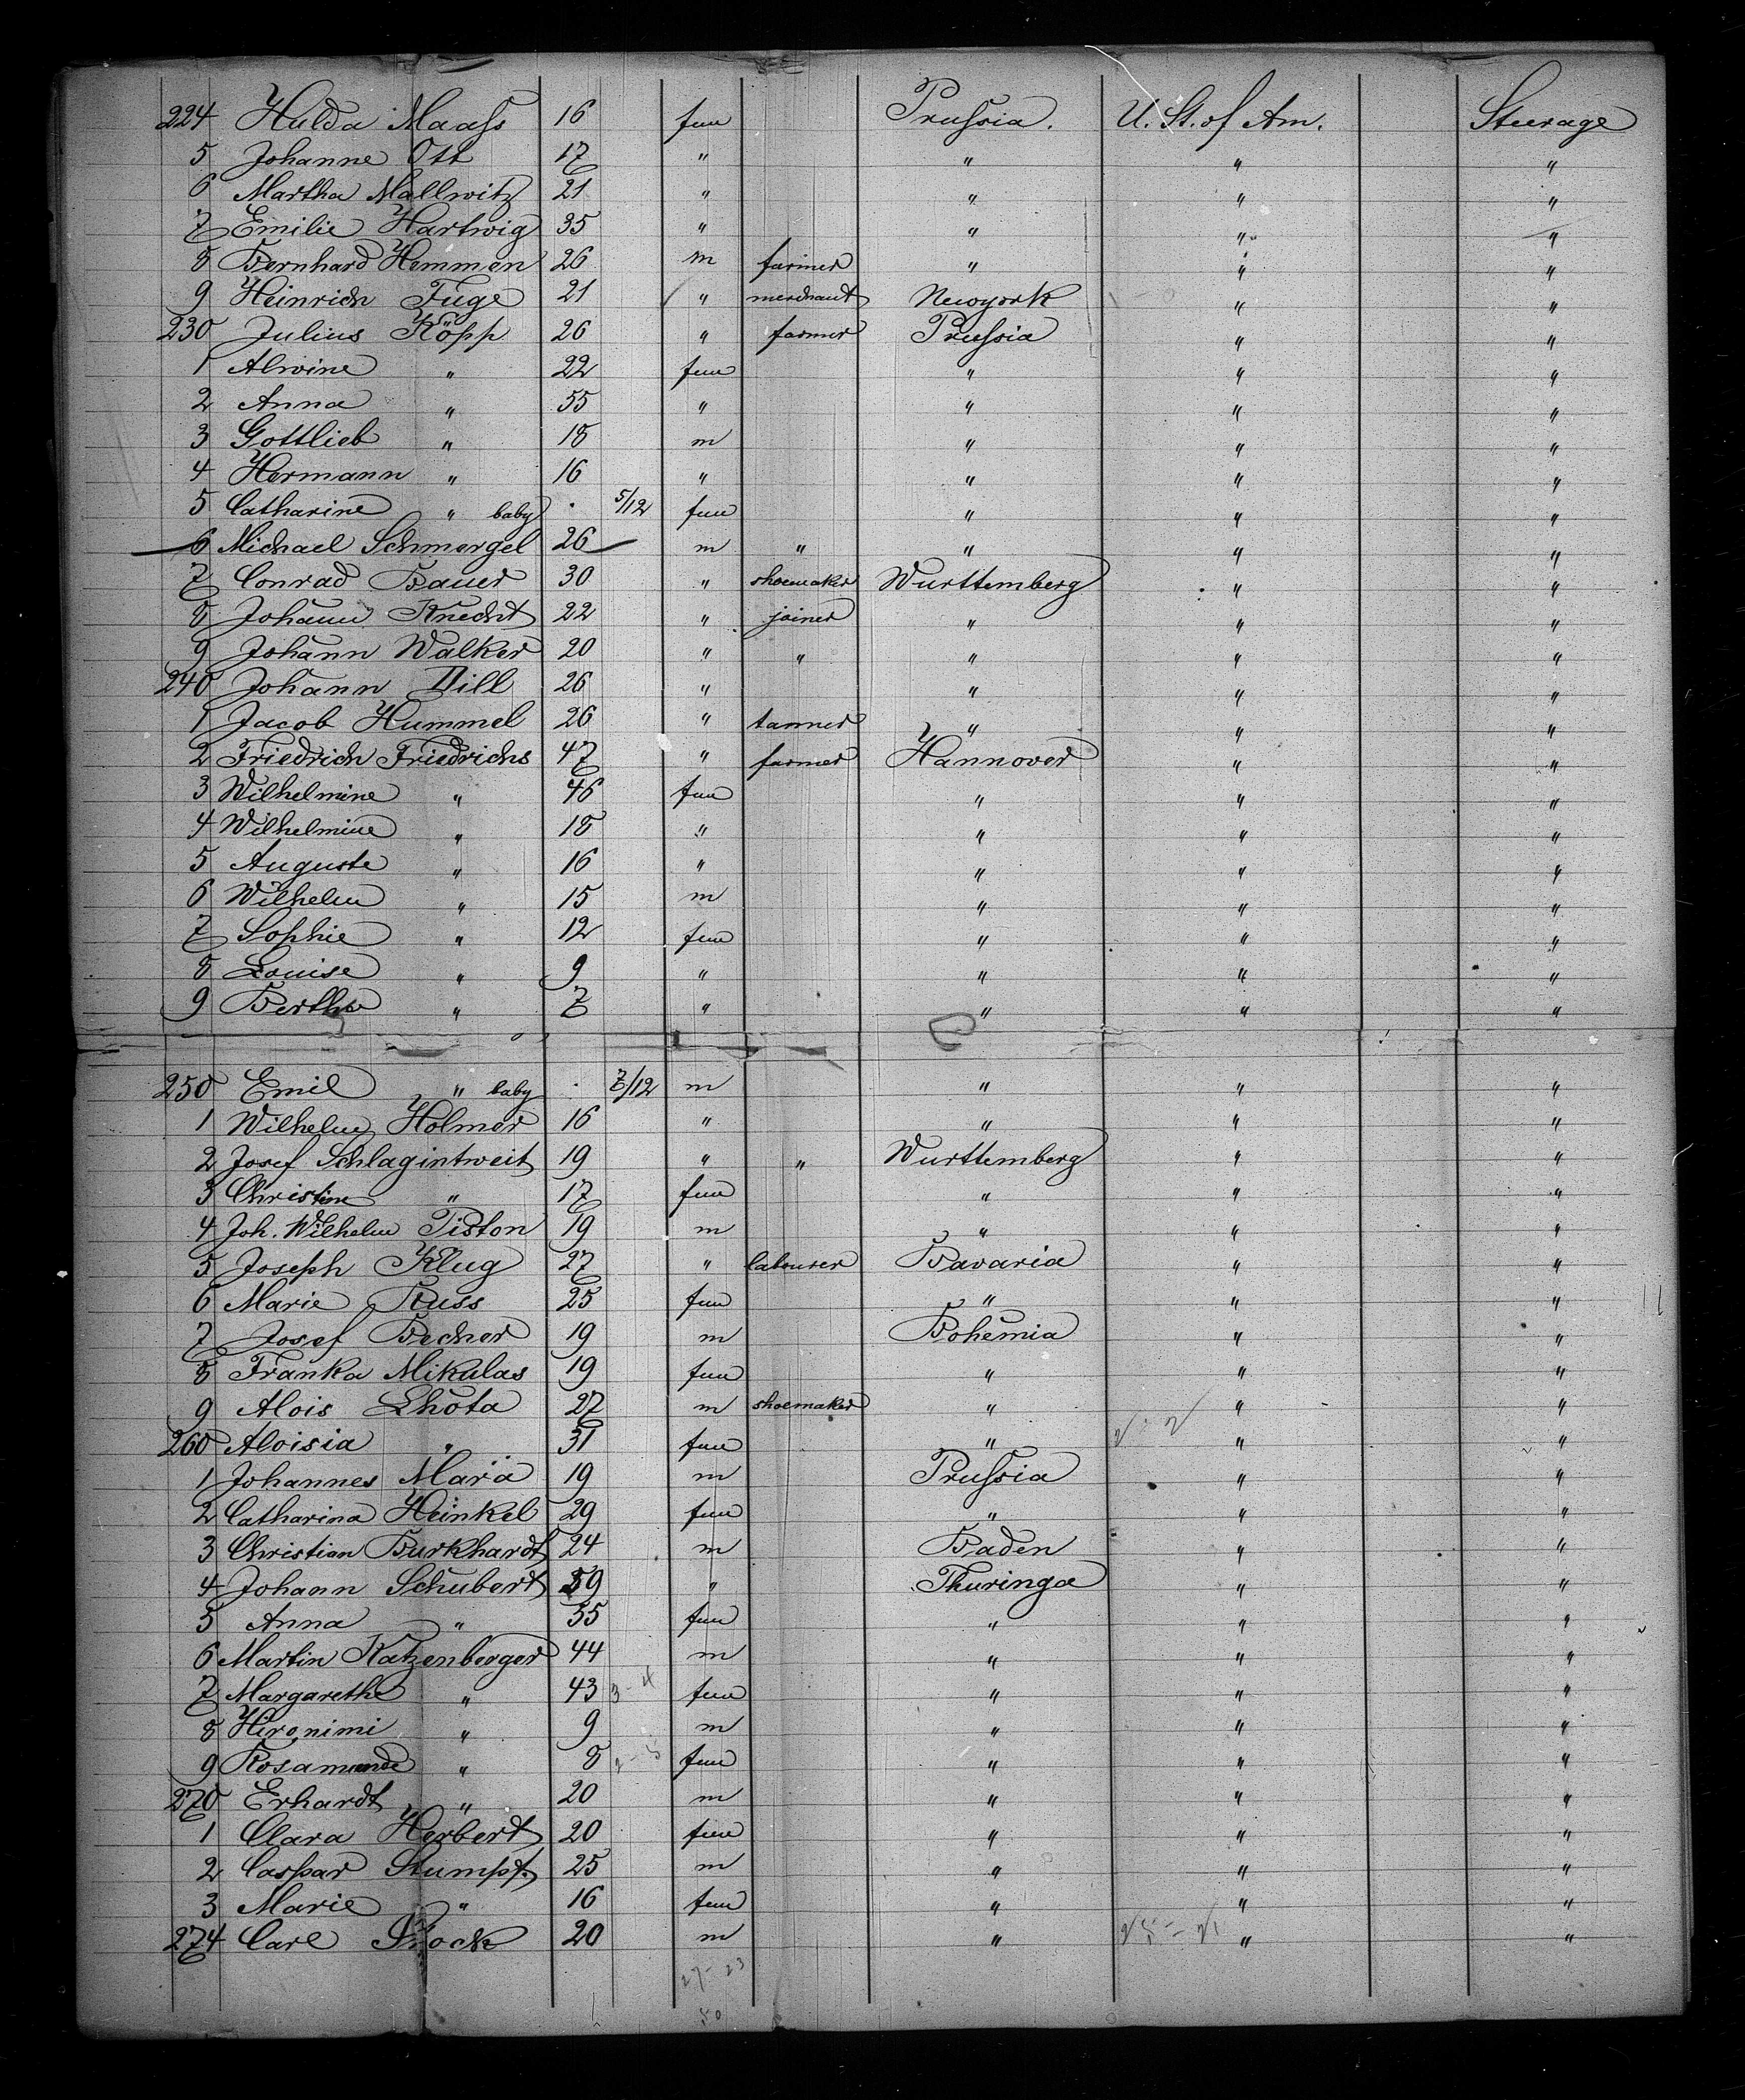 224 Hulda Maaſs 16 fem Pruſsia. U. St. of Am. Steerage
5 Johanne Ott 17 " " " "
6 Martha Mallwitz 21 " " " "
7 Emilie Hartwig 35 " " " "
8 Bernhard Hemmen 26 m farmer " " "
9 Heinrich Fuge 21 " merchant Newyork " "
230 Julius Köpp 26 " farmer Pruſsia " "
1 Alwine " 22 fem " " "
2 Anna " 55 " " " "
3 Gottlieb " 18 m " " "
4 Hermann " 16 " " " "
5 Catharine " baby . 5/12 fem " " "
6 Michael Schmergel 26 m " " " "
7 Conrad Bauer 30 " shoemaker Wurttemberg " "
8 Johann Knecht 22 " joiner " " "
9 Johann Walker 20 " " " " "
240 Johann Dill 26 " " " "
1 Jacob Hummel 26 " tanner " " "
2 Friedrich Friedrichs 47 " farmer Hannover " "
3 Wilhelmine " 46 fem " " "
4 Wilhelmine " 18 " " " "
5 Auguste " 16 " " " "
6 Wilhelm " 15 m " " "
7 Sophie " 12 fem " " "
8 Louise " 9 " " " "
9 Bertha " 7 " " " "
250 Emil " baby . 7/12 m " " "
1 Wilhelm Holmer 16 " " " "
2 Josef Schlagintweit 19 " " Wurttemberg " "
3 Christine " 17 fem " " "
4 Joh. Wilhelm Piston 19 m " " "
5 Joseph Klug 27 " labourer Bavaria " "
6 Marie Russ 25 fem " " "
7 Josef Becher 19 m Bohemia " "
8 Franka Mikulas 19 fem " " "
9 Alois Lhota 27 m shoemaker " " "
260 Aloisia " 31 fem " " "
1 Johannes Marä 19 m Pruſsia " "
2 Catharina Heinkel 29 fem " " "
3 Christian Burkhardt 24 m Baden " "
4 Johann Schubert 59 " Thuringa " "
5 Anna " 55 fem " " "
6 Martin Katzenberger 44 m " " "
7 Margarethe " 43 3-4 fem " " "
8 Hironimi " 9 m " " "
9 Rosamunde " 8 fem " " "
270 Erhardt " 20 m " " "
1 Clara Herbert 20 fem " " "
2 Caspar Stumpf 25 m " " "
3 Marie " 16 fem " " "
274 Carl 20 m " " "
27-23
50